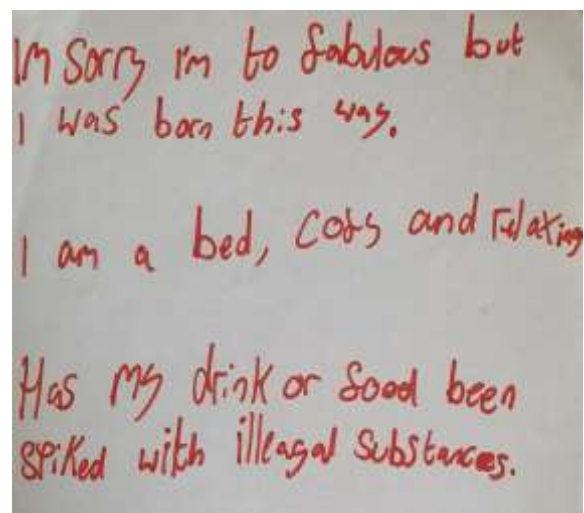 Im Sorry i'm to fabulous but
I was born this way.
I am a bed, cosy and relaxing
Has my drink or food been
spiked with illeagal substances.